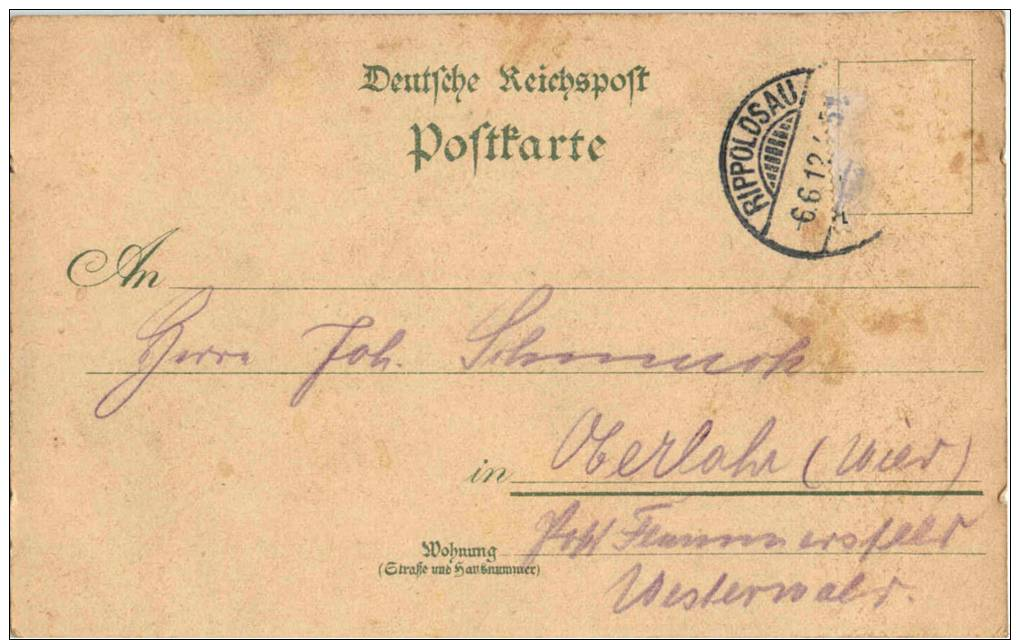 Deutsche Reichspost
Postkarte
RIPPOLDSAU
6.6.12.
An
Herrn Joh. Schmuck
in Oberlahr (Wied)
Post Flammersfeld
Wohnung
(Straße und Hausnummer)
Westerwald.